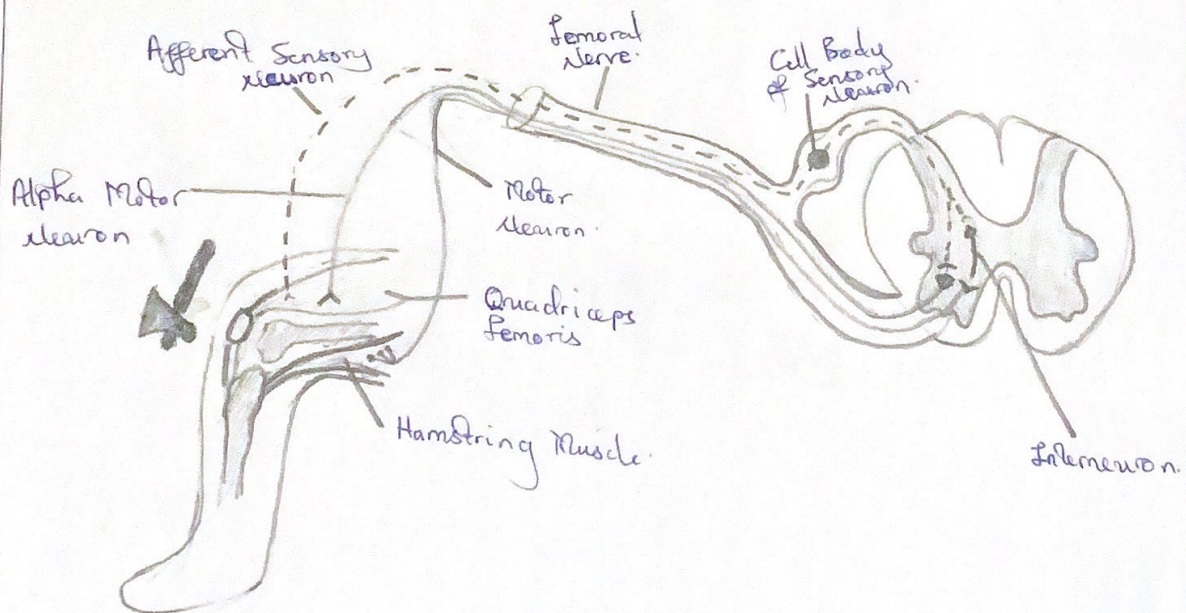 Afferent Sensory
Neuron
Femoral
Nerve.
Cell Body
of Sensory
Neuron.
Alpha Motor
Neuron
Motor
Neuron.
Quadriceps
Femoris
Hamstring Muscle.
Interneuron.